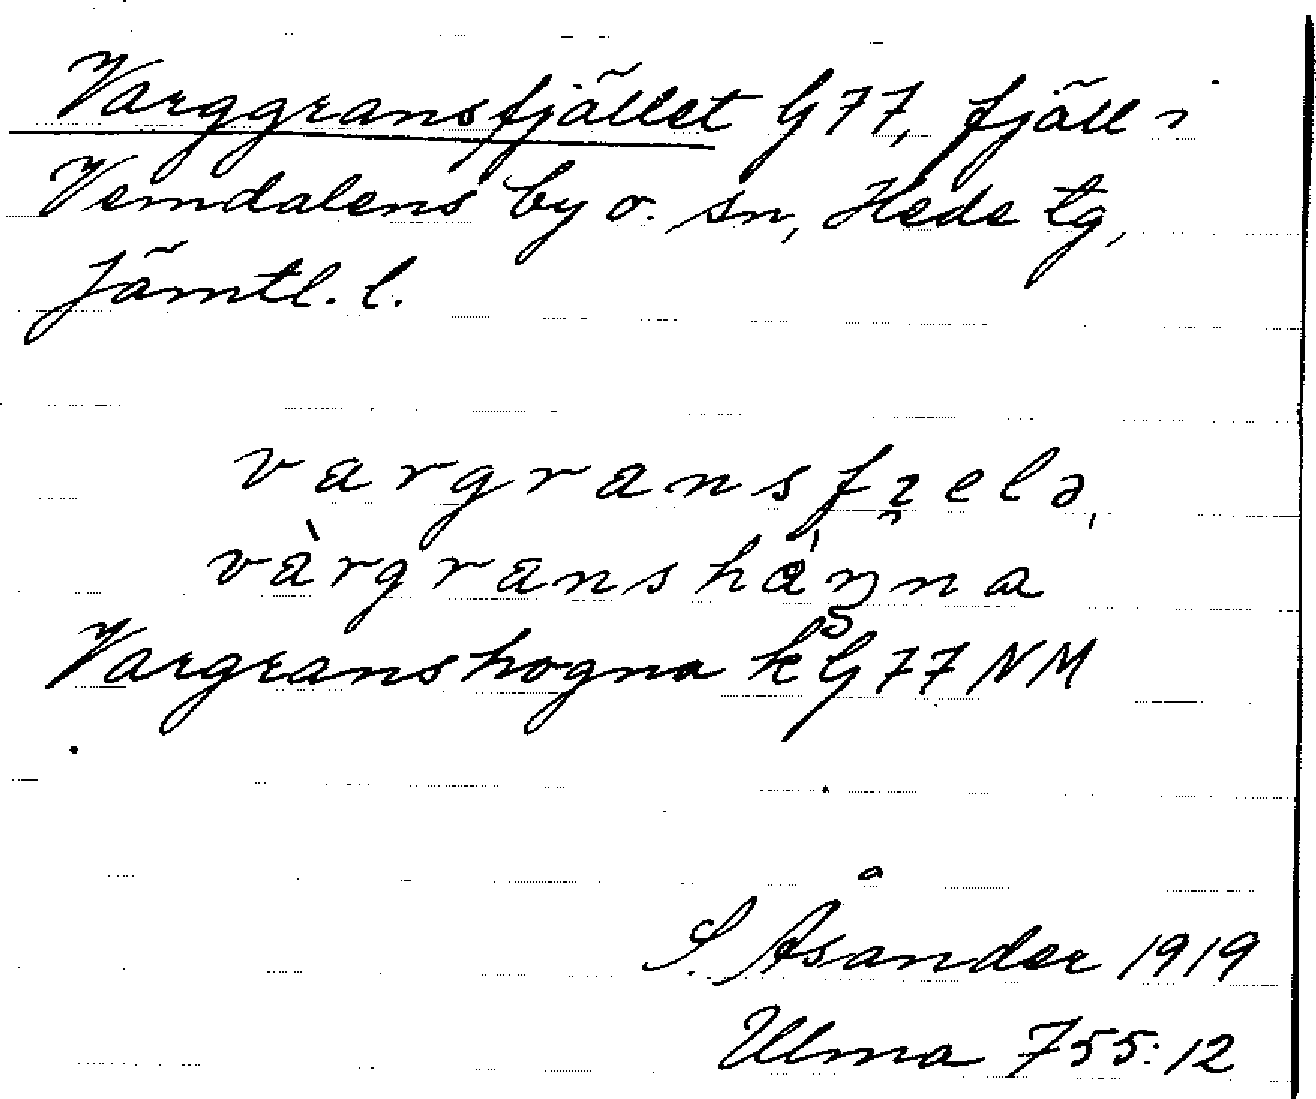 Varggransfjället G77, fjäll i
Vemdalens by o. sn, Hede tg,
Jämtl. l.
vargransfɀelə,
vàrgranshàŋna
Vargranshogna k G77 NM
S. Åsander 1919
Ulma 755:12